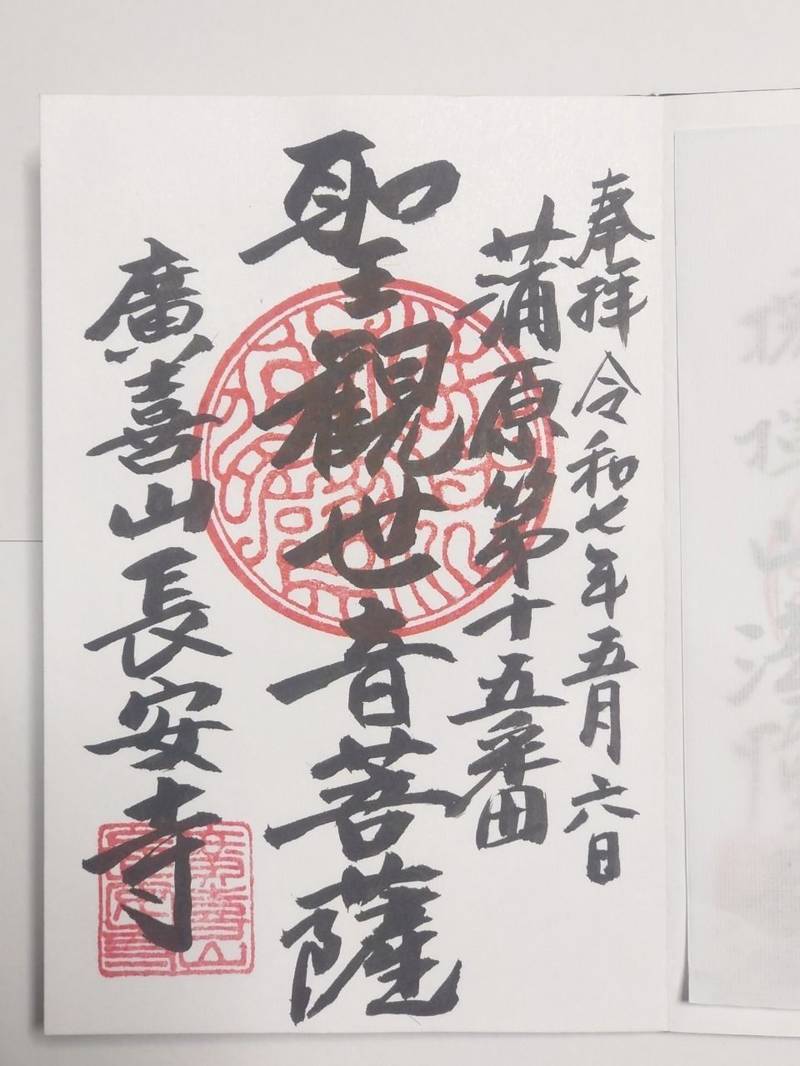 奉拝 令和七年五月六日
蒲原第十五番
聖観世音菩薩
廣喜山長安寺